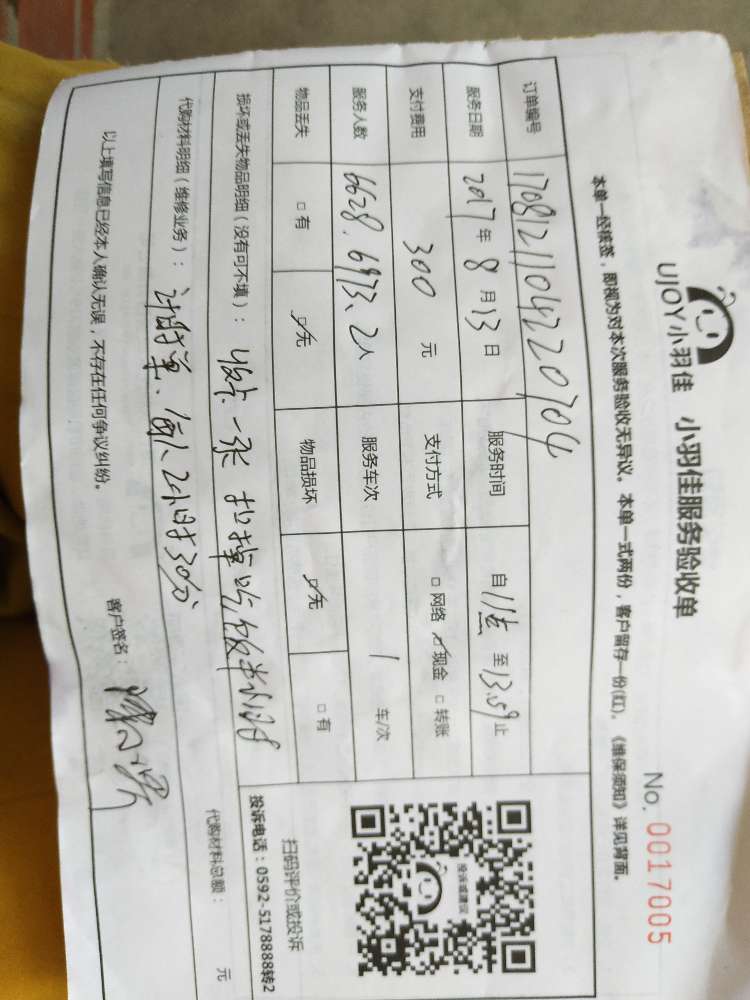 UJOY小羽佳 小羽佳服务验收单
No. 0017005
本单一经核签，即视为对本次服务验收无异议。本单一式两份，客户留存一份(红)。《维保须知》详见背面。
订单编号 17081211042220704
服务日期 2017年8月13日 服务时间 自11点至13.59止
支付费用 300元 支付方式 □网络 ☑现金 □转账
服务人数 6628.6973、2人 服务车次 1车/次
物品丢失 □有 ☑无 物品损坏 ☑无 □有
损坏或丢失物品明细（没有可不填）：
代购材料明细（维修业务）：计时单、每人2小时30分
代购材料总额： 元
以上填写信息已经本人确认无误，不存在任何争议纠纷。 客户签名：
投诉或建议
扫码评价或投诉
投诉电话：0592-5178888转2